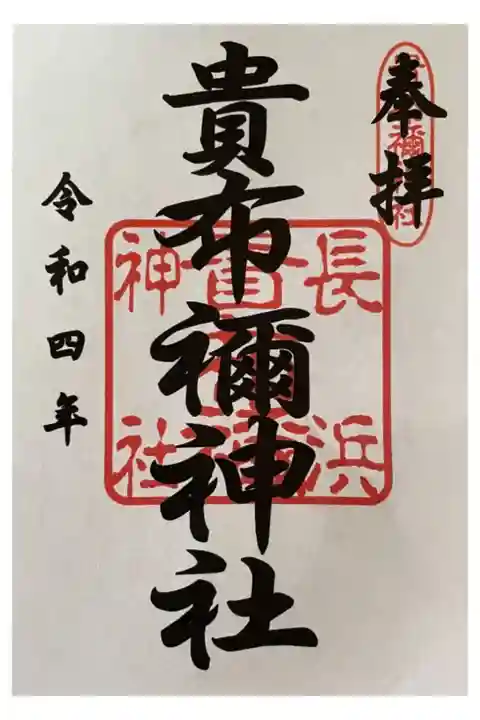 奉拝
貴布禰神社
長浜
貴布禰
神社
令和四年